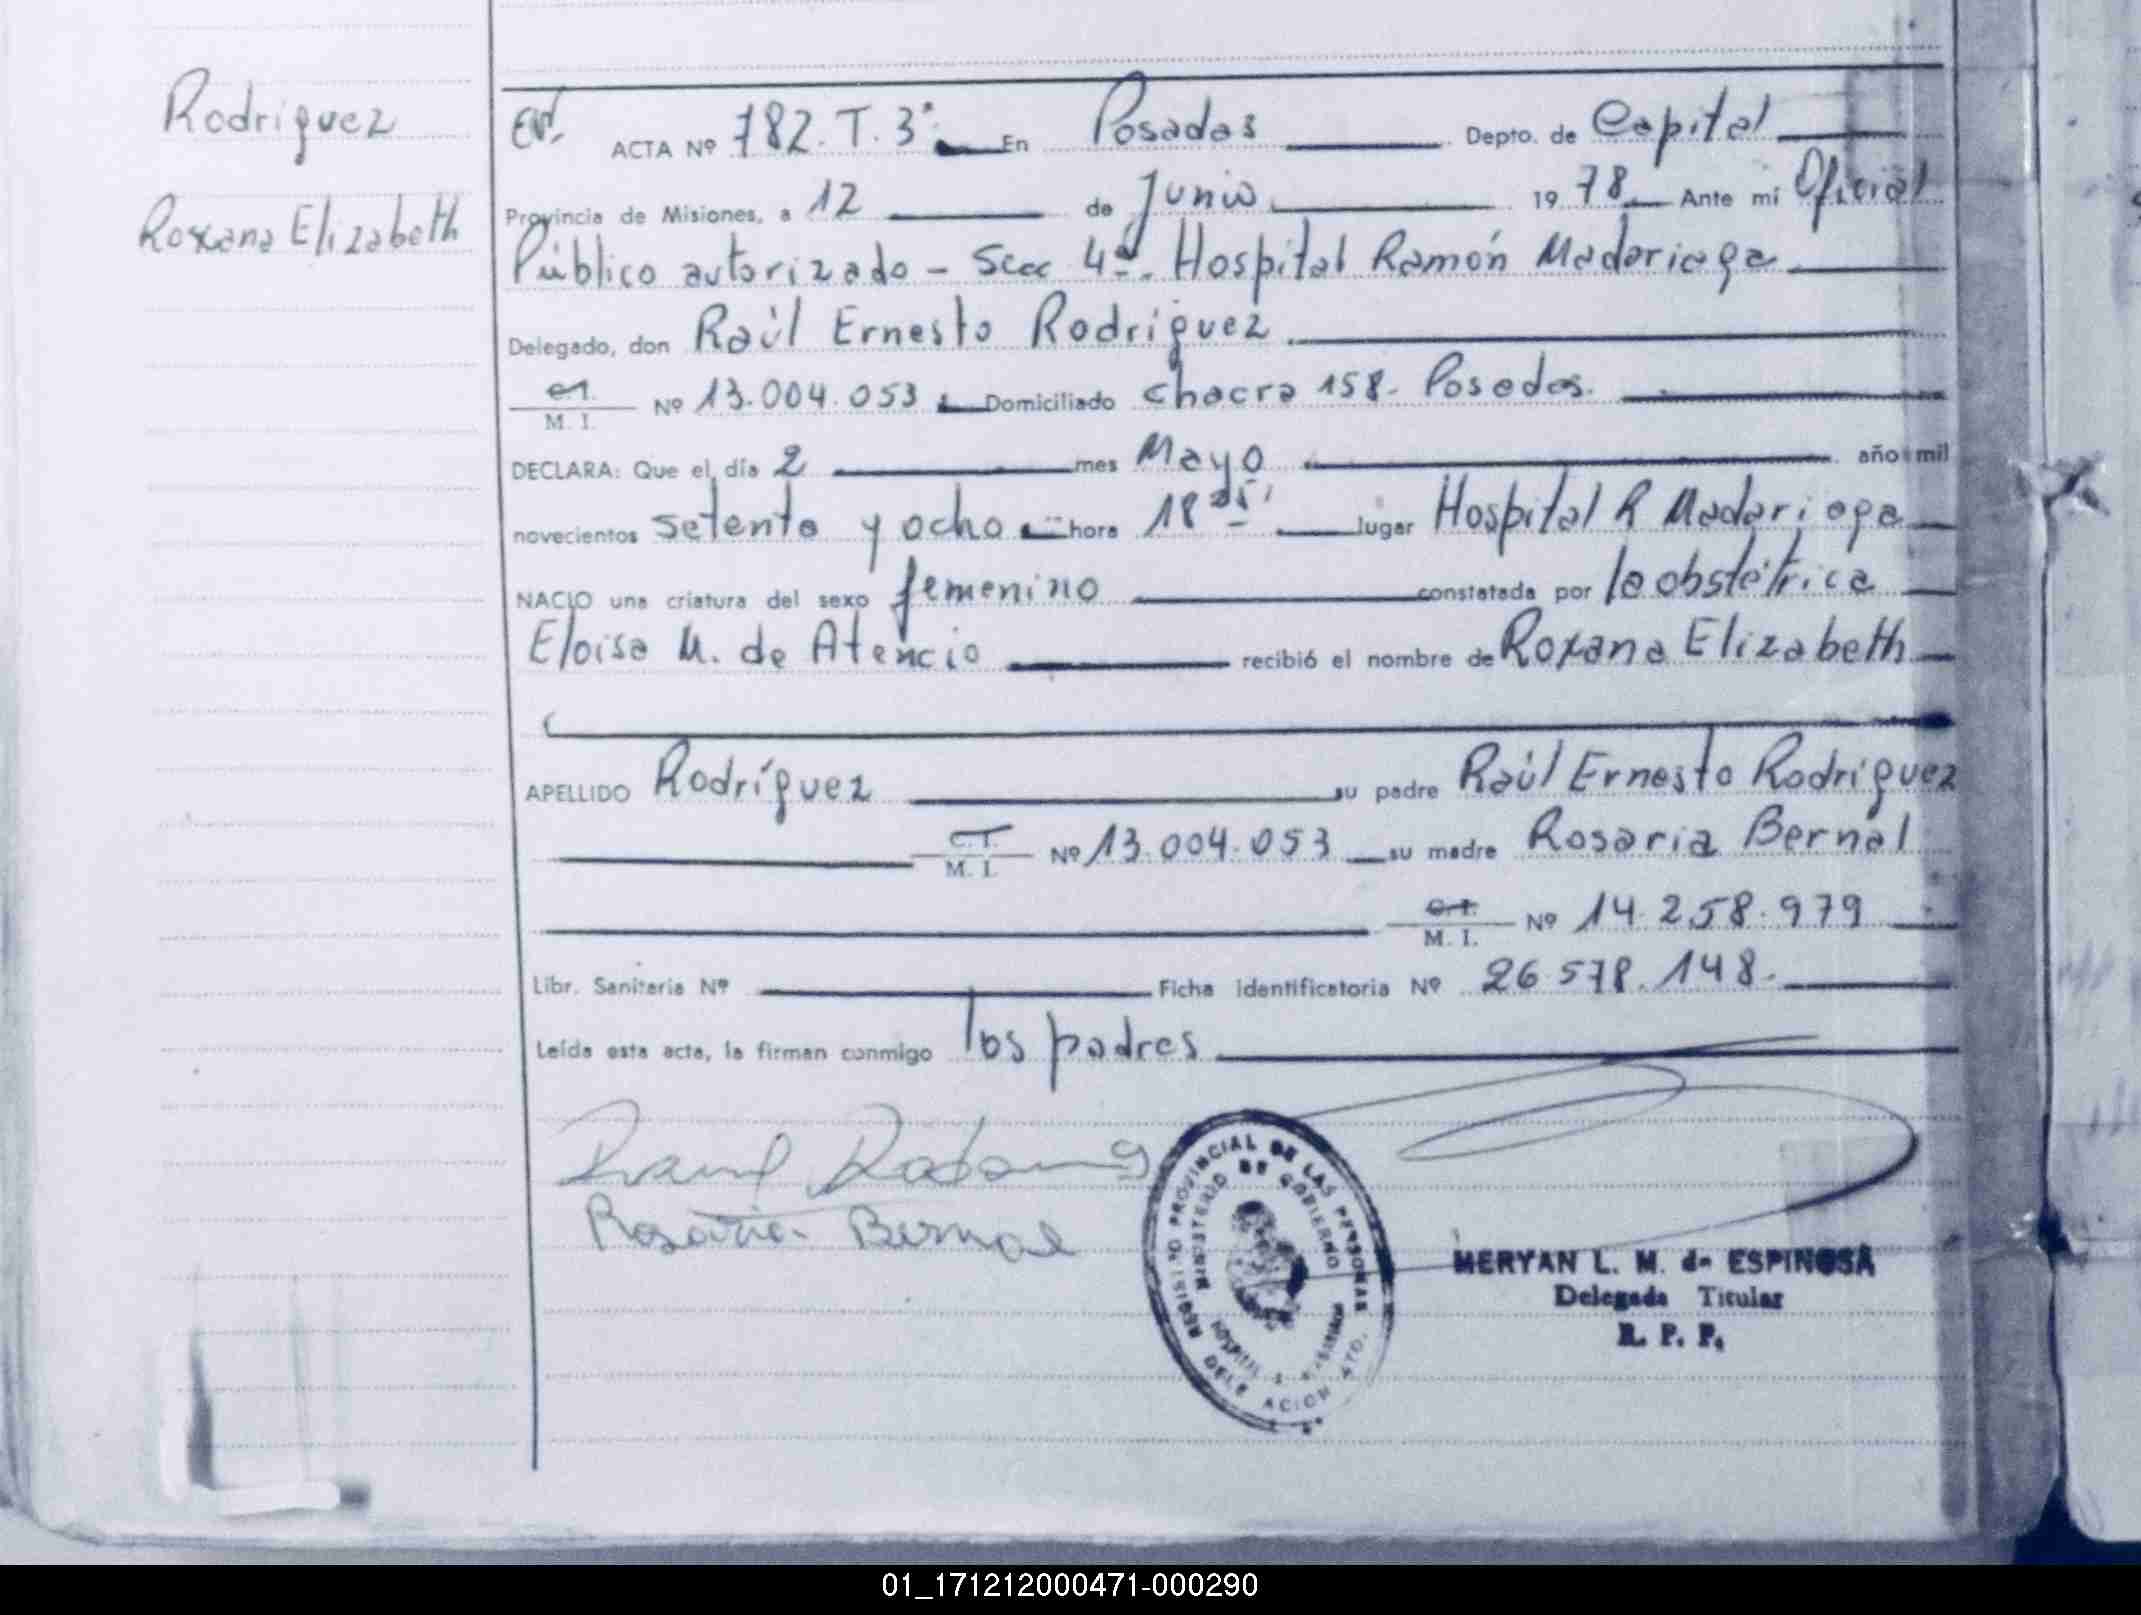 Rodriguez
Roxana Elizabeth
ACTA Nº 782. T. 3º En Posadas Depto. de Capital
Provincia de Misiones, a 12 de Junio 1978 Ante mí Oficial
Público autorizado - Secc 4ª. Hospital Ramón Madariaga
Delegado, don Raúl Ernesto Rodriguez
M. I. Nº 13.004.053 Domiciliado Chacra 158. Posadas.
DECLARA: Que el día 2 mes Mayo año mil
novecientos setenta y ocho hora 18 lugar Hospital R Madariaga
NACIO una criatura del sexo femenino constatada por la obstétrica
Eloisa M. de Atencio recibió el nombre de Roxana Elizabeth
APELLIDO Rodríguez su padre Raúl Ernesto Rodriguez
C.I. M. I. Nº 13.004.053 su madre Rosaria Bernal
C.I. M. I. Nº 14.258.979
Libr. Sanitaria Nº Ficha identificatoria Nº 26 578.148.
Leída esta acta, la firman conmigo los padres
Rosaria Bernal
REGISTRO PROVINCIAL DE LAS PERSONAS
MINISTERIO DE GOBIERNO
MERYAN L. M. de ESPINOSA
Delegada Titular
R. P. P.
01_171212000471-000290